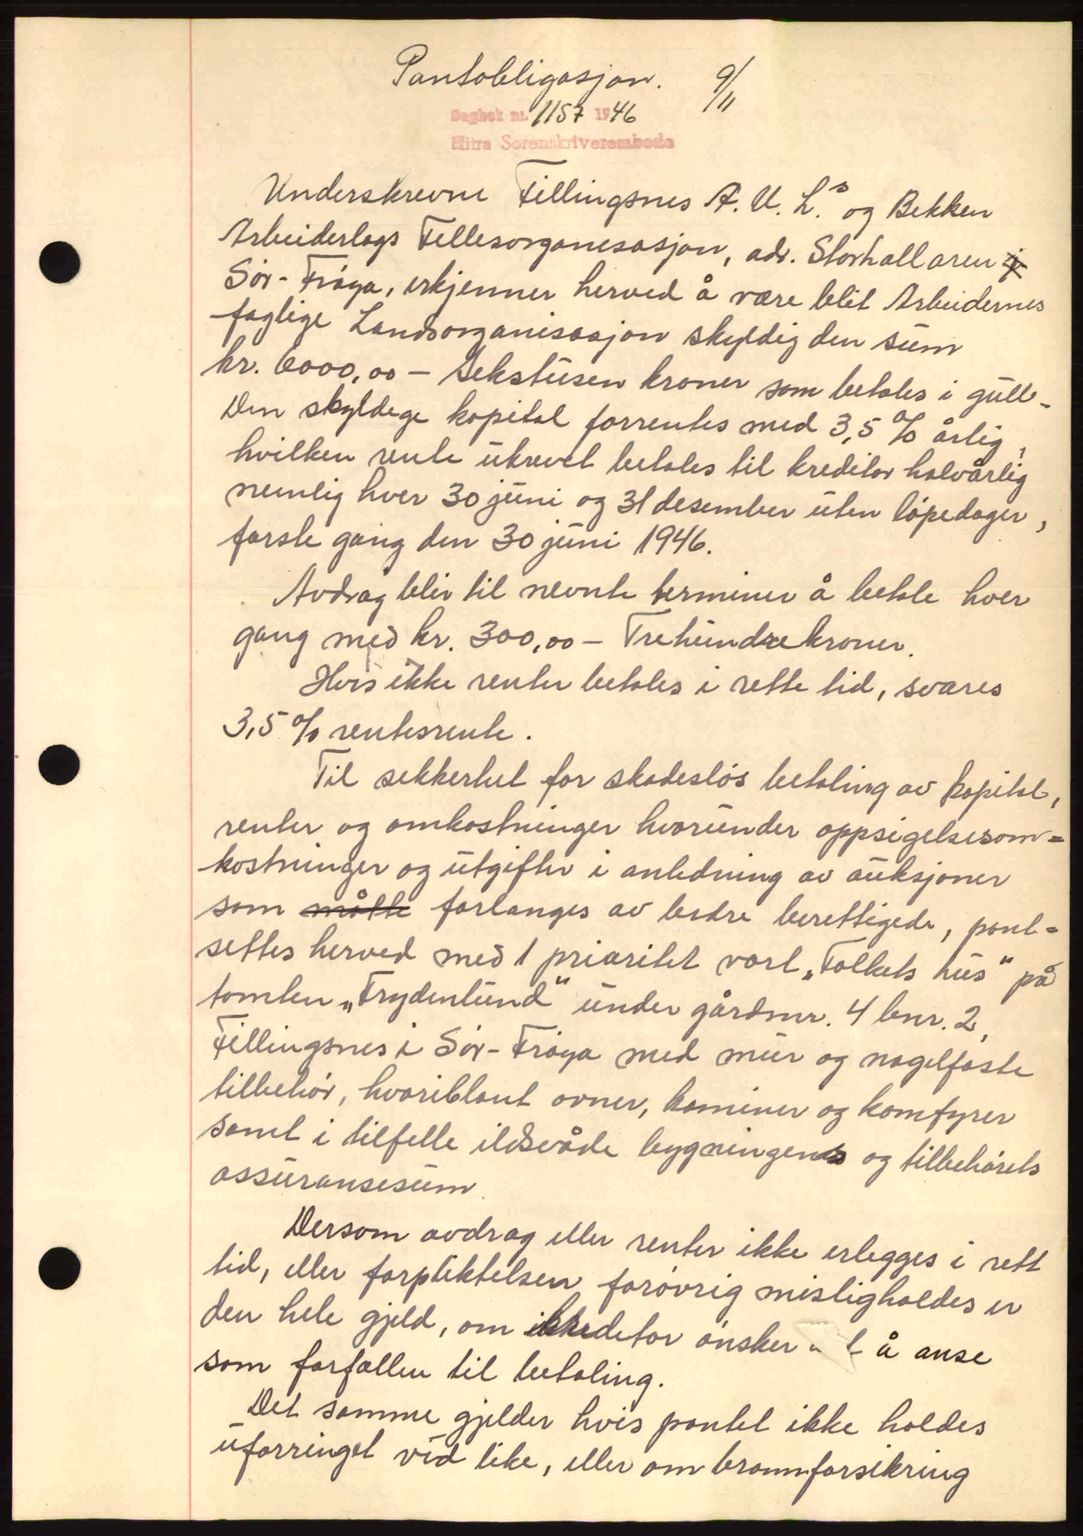 Pantobligasjon. 9/11
Dagbok nr. 1157 1946
Hitra Sorenskriverembede
Underskrevne Fillingsnes A. U. L.s og Bekken
Arbeiderlags Fellesorganisasjon, adr. Storhallaren
Sør-Frøya, erkjenner herved å være blit Arbeidernes
faglige Landsorganisasjon skyldig den sum
kr. 6000,00 – Sekstusen kroner som betales i gull.
Den skyldige kapital forrentes med 3,5 % årlig,
hvilken rente ukrevet betales til kreditor halvårlig
nemlig hver 30 juni og 31 desember uten løpedager,
første gang den 30 juni 1946.
Avdrag blir til nevnte terminer å betale hver
gang med kr. 300,00 – Trehundre kroner.
Hvis ikke renter betales i rette tid, svares
3,5 % rentesrente.
Til sekkerhet for skadesløs betaling av kapital,
renter og omkostninger hvorunder oppsigelsesom=
kostninger og utgifter i anledning av auksjoner
som måtte forlanges av bedre berettigede, pant=
settes herved med 1 prioritet vort „Folkets hus" på
tomten „Frydenlund" under gårdnr. 4 bnr. 2,
Fillingsnes i Sør-Frøya med mur og nagelfaste
tilbehør, hvoriblant ovner, kaminer og komfyrer
samt i tilfelle ildsvåde bygningens og tilbehørets
assuransesum
Dersom avdrag eller renter ikke erlegges i rett
tid, eller forpliktelsen forøvrig misligholdes er
den hele gjeld, om kreditor ønsker å anse
som forfallen til betaling.
Det samme gjelder hvis pantet ikke holdes
uforringet vid like, eller om brannforsikring